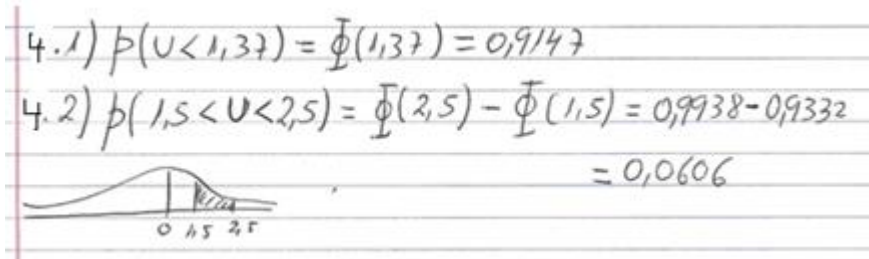 4.1) p(U<1,37) = Φ(1,37) = 0,9147
4.2) p(1,5<U<2,5) = Φ(2,5) - Φ(1,5) = 0,9938-0,9332
= 0,0606
0 1,5 2,5